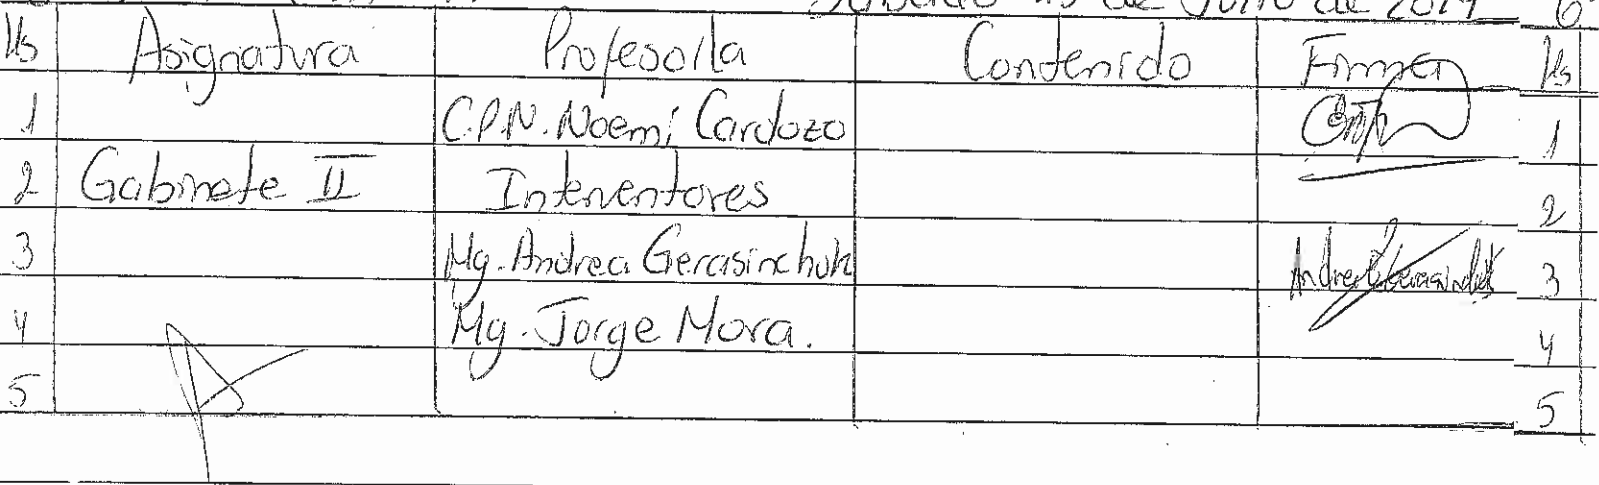 de Julio de 2014 6
Hs Asignatura Profesor/a Contenido Firma Hs
1 C.P.N. Noemí Cardozo 1
2 Gabinete II Interventores 2
3 Mg. Andrea Gerasinchuk Andrea Gerasinchuk 3
4 Mg. Jorge Mora. 4
5 5